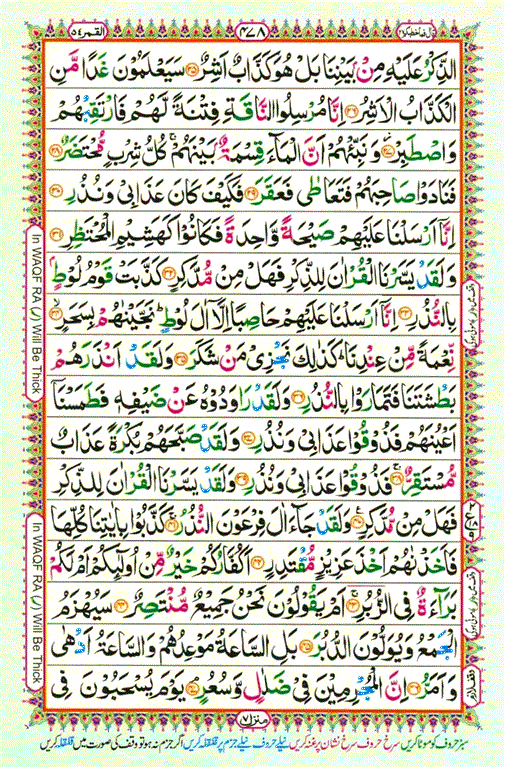 القمر ٥٤
٤٧٨
قال فما خطبكم ٢٧
الذِّكْرُ عَلَيْهِ مِنْۢ بَيْنِنَا بَلْ هُوَ كَذَّابٌ اَشِرٌ ﴿٢٥﴾ سَيَعْلَمُوْنَ غَدًا مَّنِ
الْكَذَّابُ الْاَشِرُ ﴿٢٦﴾ اِنَّا مُرْسِلُوا النَّاقَةِ فِتْنَةً لَّهُمْ فَارْتَقِبْهُمْ
وَاصْطَبِرْ ﴿٢٧﴾ وَنَبِّئْهُمْ اَنَّ الْمَآءَ قِسْمَةٌۢ بَيْنَهُمْ ۚ كُلُّ شِرْبٍ مُّحْتَضَرٌ ﴿٢٨﴾
فَنَادَوْا صَاحِبَهُمْ فَتَعَاطٰى فَعَقَرَ ﴿٢٩﴾ فَكَيْفَ كَانَ عَذَابِيْ وَنُذُرِ ﴿٣٠﴾
اِنَّآ اَرْسَلْنَا عَلَيْهِمْ صَيْحَةً وَّاحِدَةً فَكَانُوْا كَهَشِيْمِ الْمُحْتَظِرِ ﴿٣١﴾
وَلَقَدْ يَسَّرْنَا الْقُرْاٰنَ لِلذِّكْرِ فَهَلْ مِنْ مُّدَّكِرٍ ﴿٣٢﴾ كَذَّبَتْ قَوْمُ لُوْطٍۭ
بِالنُّذُرِ ﴿٣٣﴾ اِنَّآ اَرْسَلْنَا عَلَيْهِمْ حَاصِبًا اِلَّآ اٰلَ لُوْطٍ ؕ نَجَّيْنٰهُمْ بِسَحَرٍ ﴿٣٤﴾
نِّعْمَةً مِّنْ عِنْدِنَا ؕ كَذٰلِكَ نَجْزِيْ مَنْ شَكَرَ ﴿٣٥﴾ وَلَقَدْ اَنْذَرَهُمْ
بَطْشَتَنَا فَتَمَارَوْا بِالنُّذُرِ ﴿٣٦﴾ وَلَقَدْ رَاوَدُوْهُ عَنْ ضَيْفِهٖ فَطَمَسْنَآ
اَعْيُنَهُمْ فَذُوْقُوْا عَذَابِيْ وَنُذُرِ ﴿٣٧﴾ وَلَقَدْ صَبَّحَهُمْ بُكْرَةً عَذَابٌ
مُّسْتَقِرٌّ ﴿٣٨﴾ فَذُوْقُوْا عَذَابِيْ وَنُذُرِ ﴿٣٩﴾ وَلَقَدْ يَسَّرْنَا الْقُرْاٰنَ لِلذِّكْرِ
فَهَلْ مِنْ مُّدَّكِرٍ ﴿٤٠﴾ وَلَقَدْ جَآءَ اٰلَ فِرْعَوْنَ النُّذُرُ ﴿٤١﴾ كَذَّبُوْا بِاٰيٰتِنَا كُلِّهَا
فَاَخَذْنٰهُمْ اَخْذَ عَزِيْزٍ مُّقْتَدِرٍ ﴿٤٢﴾ اَكُفَّارُكُمْ خَيْرٌ مِّنْ اُولٰٓئِكُمْ اَمْ لَكُمْ
بَرَآءَةٌ فِى الزُّبُرِ ﴿٤٣﴾ اَمْ يَقُوْلُوْنَ نَحْنُ جَمِيْعٌ مُّنْتَصِرٌ ﴿٤٤﴾ سَيُهْزَمُ
الْجَمْعُ وَيُوَلُّوْنَ الدُّبُرَ ﴿٤٥﴾ بَلِ السَّاعَةُ مَوْعِدُهُمْ وَالسَّاعَةُ اَدْهٰى
وَاَمَرُّ ﴿٤٦﴾ اِنَّ الْمُجْرِمِيْنَ فِيْ ضَلٰلٍ وَّسُعُرٍ ﴿٤٧﴾ يَوْمَ يُسْحَبُوْنَ فِى
In WAQF RA (ر) Will Be Thick
In WAQF RA (ر) Will Be Thick
وقف لازم
منزل ٧
سبز حروف کو موٹا کریں سرخ حروف سرخ نشان پر غنہ کریں نیلے حروف نیلے جزم پر قلقلہ کریں اگر جزم نہ ہو تو وقف کی صورت میں قلقلہ کریں